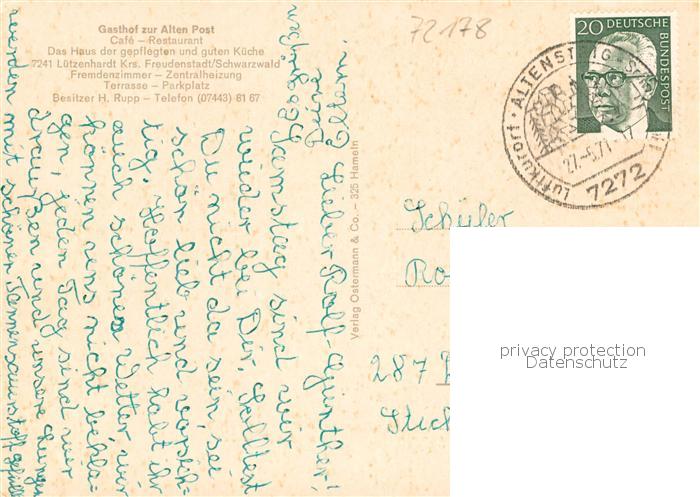 Gasthof zur Alten Post
Café – Restaurant
Das Haus der gepflegten und guten Küche
7241 Lützenhardt Krs. Freudenstadt/Schwarzwald
Fremdenzimmer – Zentralheizung
Terrasse – Parkplatz
Besitzer H. Rupp – Telefon (07443) 81 67
72178
20 DEUTSCHE BUNDESPOST
Luftkurort · ALTENSTEIG
27.-5.71
7272
Verlag Ostermann & Co. – 325 Hameln
Lieber Ralf-Günther!
Samstag sind wir
wieder bei Dir. Solltest
Du nicht da sein, sei
schön lieb und vorsich-
tig. Hoffentlich habt ihr
auch schönes Wetter, wir
können uns nicht bekla-
gen, jeden Tag sind wir
draußen und unsere Lungen
werden mit schönen Tannensauerstoff gefüllt
Deine Eltern!
Schüler
287
privacy protection
Datenschutz